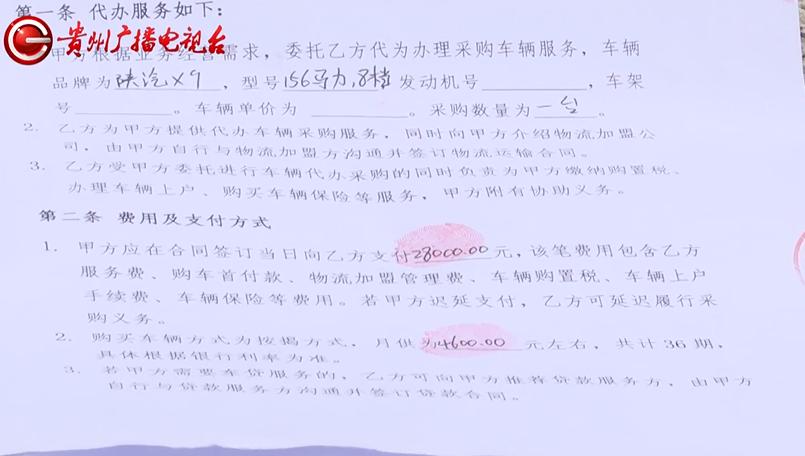 第一条 代办服务如下：
贵州广播电视台
甲方根据业务经营需求，委托乙方代为办理采购车辆服务，车辆
品牌为陕汽X9，型号156马力，8档发动机号，车架
号。车辆单价为。采购数量为一台。
2. 乙方为甲方提供代办车辆采购服务，同时向甲方介绍物流加盟公
司，由甲方自行与物流加盟方沟通并签订物流运输合同。
3. 乙方受甲方委托进行车辆代办采购的同时负责为甲方缴纳购置税、
办理车辆上户、购买车辆保险等服务，甲方附有协助义务。
第二条 费用及支付方式
1. 甲方应在合同签订当日向乙方支付28000.00元，该笔费用包含乙方
服务费、购车首付款、物流加盟管理费、车辆购置税、车辆上户
手续费、车辆保险等费用。若甲方迟延支付，乙方可延迟履行采
购义务。
2. 购买车辆方式为按揭方式，月供为4600.00元左右，共计36期，
具体根据银行利率为准。
3. 若甲方需要车贷服务的，乙方可向甲方推荐贷款服务方，由甲方
自行与贷款服务方沟通并签订贷款合同。